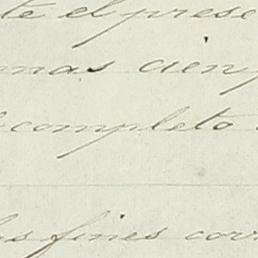 te el prese
nas cien
completo
los fines cor